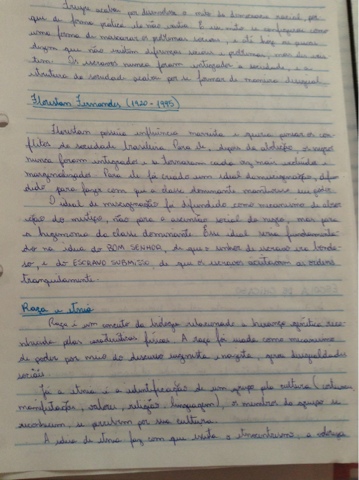 Freyre acaba por descrever o mito da democracia racial, por
que de forma prática ela não existe. E esse mito se configurou como
uma forma de mascarar os problemas sociais, e até hoje as pessoas
dizem que não existem diferenças sociais e problemas, mas eles exis
tem. Os escravos nunca foram integrados a sociedade, e a
estrutura da sociedade acabou por se formar de maneira desigual.
Florestan Fernandes (1920-1995)
Florestan possuía influência marxista e queria pensar os con
flitos da sociedade brasileira. Para ele, depois da abolição, os negros
nunca foram integrados e se tornaram cada vez mais excluídos e
marginalizados. Para ele foi criado um ideal de miscigenação, difun
dido para fazer com que a classe dominante mantivesse seu poder.
O ideal de miscigenação foi difundido como mecanismo de absor
ção do mestiço, não para a ascensão social do negro, mas para
a hegemonia da classe dominante. Esse ideal seria fundamenta
do na ideia do BOM SENHOR, de que o senhor de escravo era bondo
so, e do ESCRAVO SUBMISSO, de que os escravos aceitavam as ordens
tranquilamente.
Raça e etnia
Raça é um conceito da biologia relacionado a herança genética reco
nhecido pelas características físicas. A raça foi usada como mecanismo
de poder por meio do discurso eugenista e nazista, gera desigualdades
sociais.
Já a etnia é a identificação de um grupo pela cultura (costumes,
manifestações, valores, religião, linguagem), os membros do grupo se
reconhecem, se percebem por sua cultura.
A ideia de etnia faz com que exista o etnocentrismo, a crença